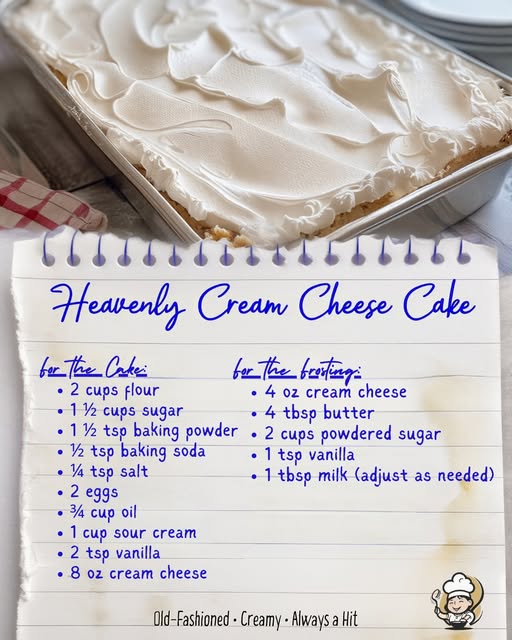 Heavenly Cream Cheese Cake
for the Cake:
• 2 cups flour
• 1 ½ cups sugar
• 1 ½ tsp baking powder
• ½ tsp baking soda
• ¼ tsp salt
• 2 eggs
• ¾ cup oil
• 1 cup sour cream
• 2 tsp vanilla
• 8 oz cream cheese
for the frosting:
• 4 oz cream cheese
• 4 tbsp butter
• 2 cups powdered sugar
• 1 tsp vanilla
• 1 tbsp milk (adjust as needed)
Old-Fashioned • Creamy • Always a Hit